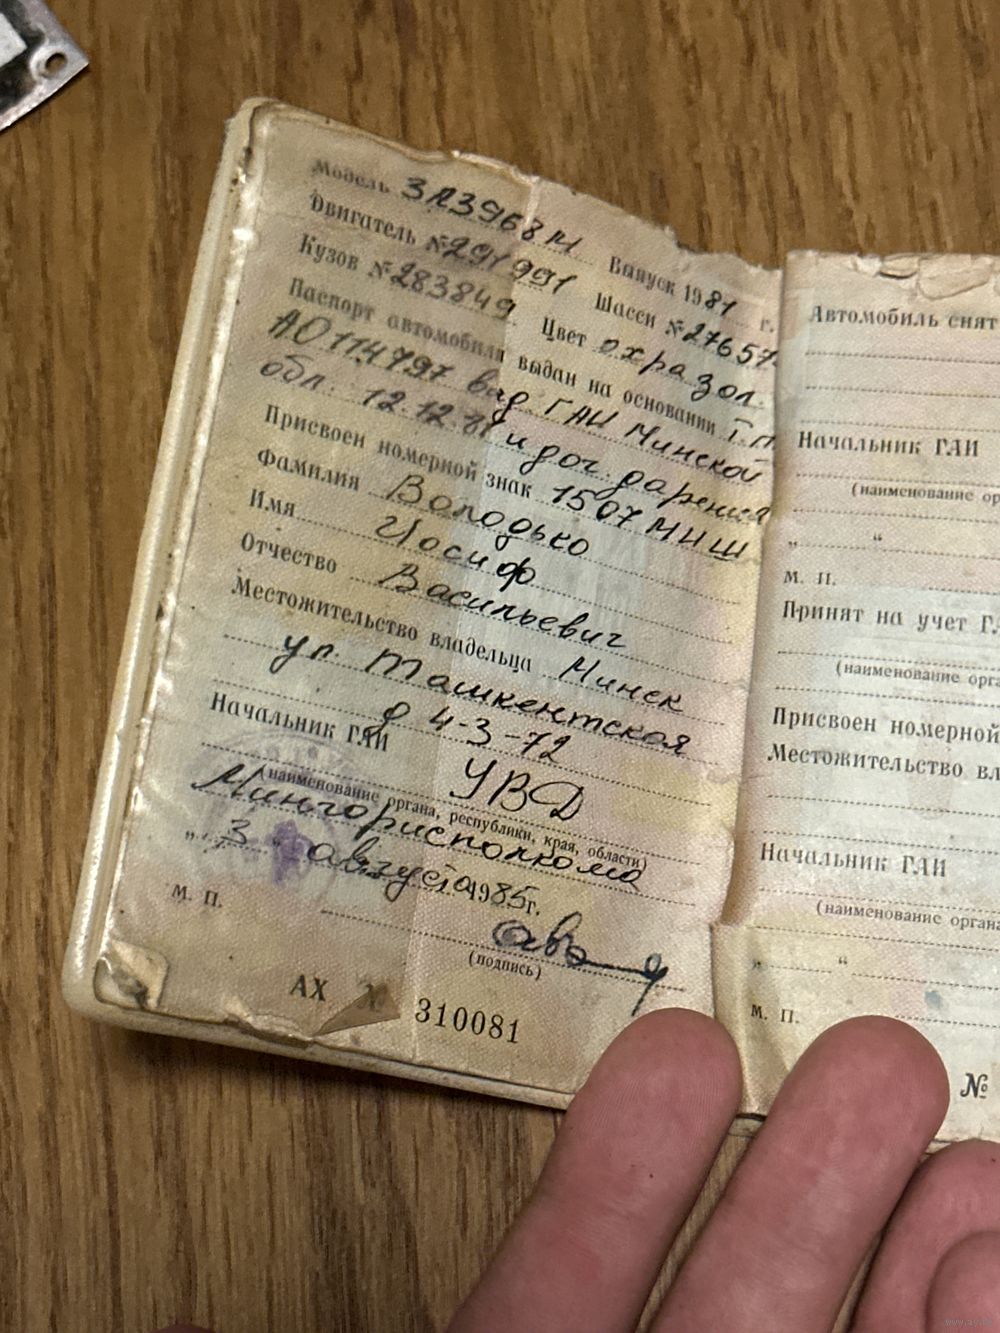 Модель ЗАЗ968М Выпуск 1981 г.
Двигатель № 291991 Шасси № 27657
Кузов № 283849 Цвет охра зол.
Паспорт автомобиля выдан на основании Т.П.
АО 114797 выд ГАИ Минской
обл. 12.12.81 и дог. дарения
Присвоен номерной знак 1507 МИШ
Фамилия Володько
Имя Иосиф
Отчество Васильевич
Местожительство владельца Минск
ул. Ташкентская
д 4-3-72
Начальник ГАИ УВД
(наименование органа, республики, края, области)
Мингорисполкома
„ 3 “ августа 1985 г.
(подпись)
м. п.
АХ № 310081
Автомобиль снят
Начальник ГАИ
(наименование ор
„ “
м. п.
Принят на учет ГА
(наименование орга
Присвоен номерной
Местожительство вл
Начальник ГАИ
(наименование органа
„ “
м. п.
№